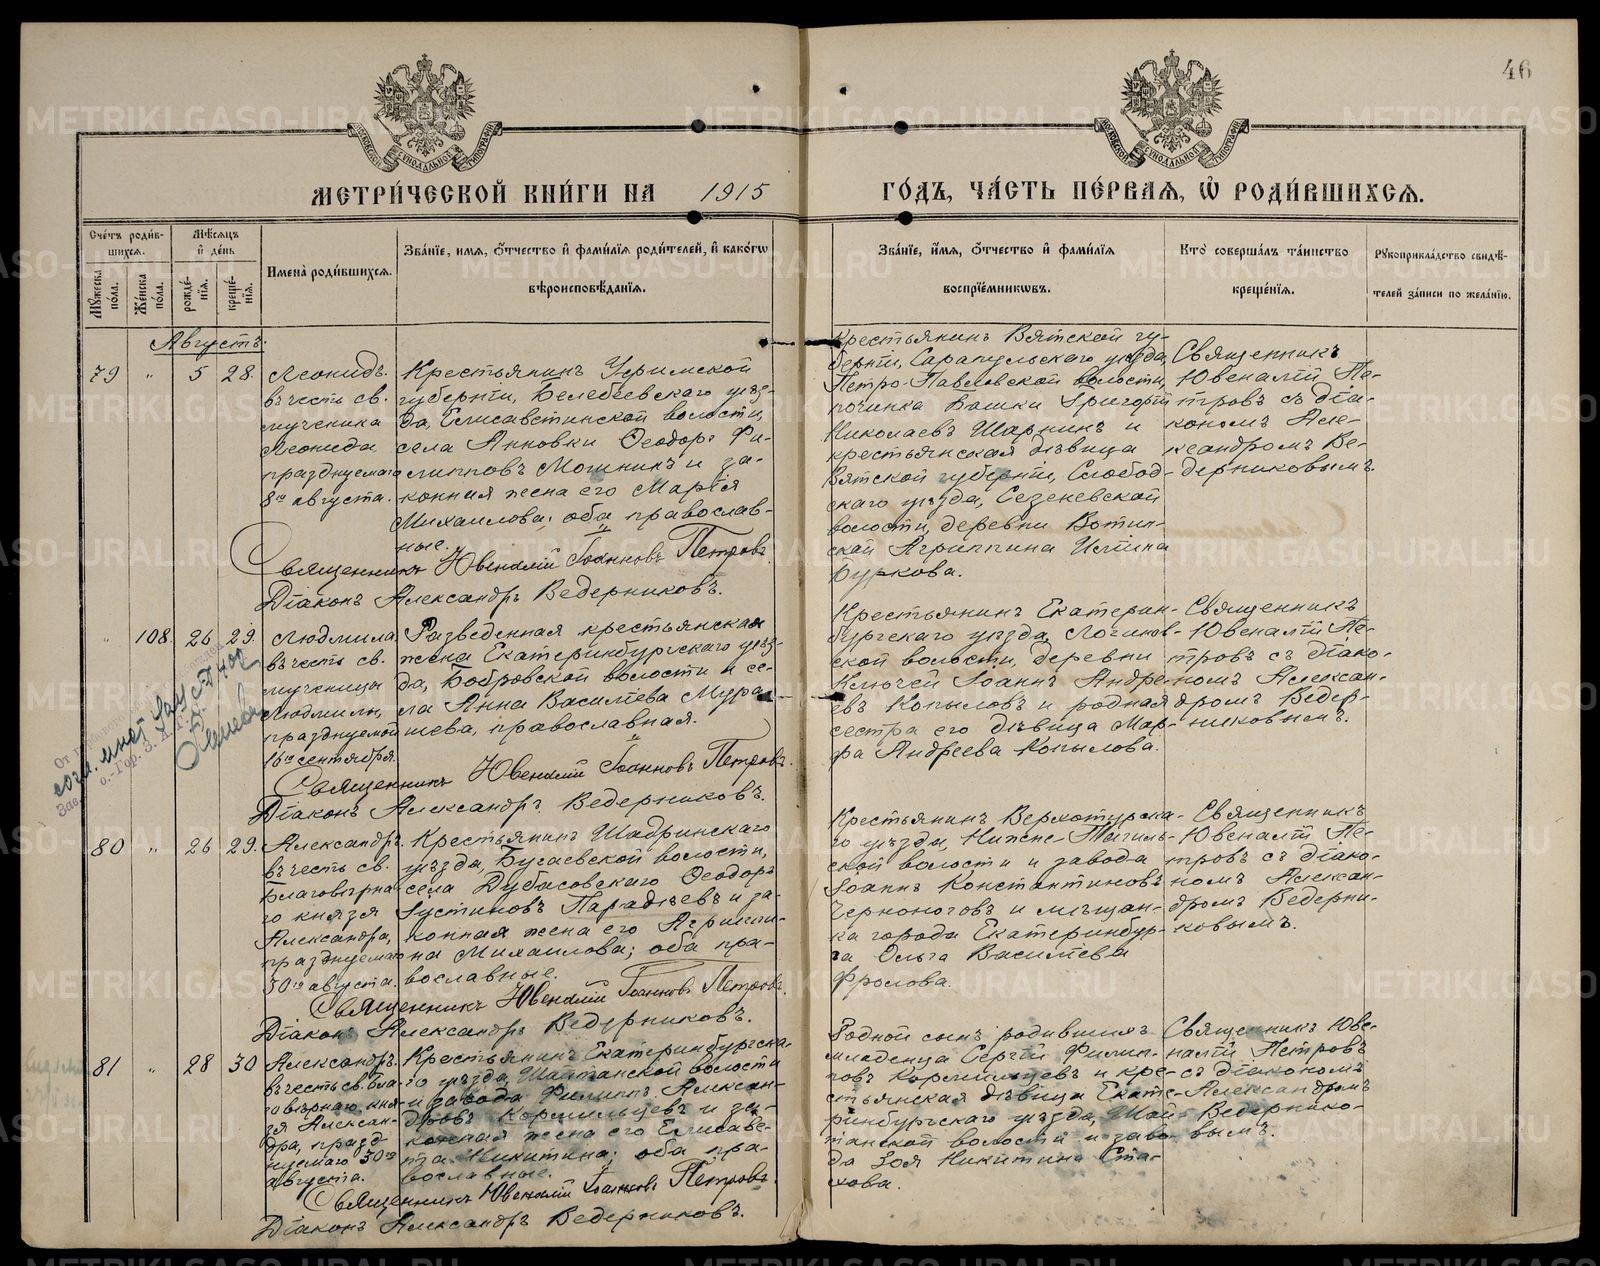 46
МЕТРИ́ЧЕСКОЙ КНИ́ГИ НА 1915 ГО́ДЪ, ЧА́СТЬ ПЕ́РВАѦ, Ѡ҆ РОДИ́ВШИХСѦ.
Сче́тъ роди́в-
шихсѧ.
Мꙋ́жеска по́ла.
Же́нска по́ла.
Мѣ́сѧцъ и҆ де́нь
рожде́-
нїѧ.
креще́-
нїѧ.
Имена̀ роди́вшихсѧ.
Зва́нїе, и҆мѧ, ѻ҆́тчество и҆ фами́лїѧ роди́телей, и҆ како́гѡ
вѣроисповѣ́данїѧ.
Зва́нїе, и҆́мѧ, ѻ҆́тчество и҆ фами́лїѧ
воспрїе́мникѡвъ.
Кто̀ соверша́лъ та́инство
креще́нїѧ.
Рꙋкоприкла́дство свидѣ́-
телей за́писи по жела́нїю.
Августъ.
79 " 5 28.
Леонидъ.
въ честь св.
мученика
Леонида
празднуемаго
8го августа.
Крестьянинъ Уфимской
губернїи, Белебеевскаго уѣз-
да, Елисаветинской волости,
села Анновки Ѳеодоръ Фи-
липповъ Мошникъ и за-
конная жена его Марїя
Михаилова; оба православ-
ные.
Священникъ Ювеналїй Їоанновъ Петровъ.
Дїаконъ Александръ Ведерниковъ.
Крестьянинъ Вятской гу-
бернїи, Сарапульскаго уѣзда,
Петро-Павловской волости,
починка Вашки Григорїй
Николаевъ Шаркинъ и
крестьянская дѣвица
Вятской губернїи, Слобод-
скаго уѣзда, Сезеневской
волости, деревни Вотин-
ской Агриппина Исшина
Буркова.
Священникъ
Ювеналїй Пе-
тровъ съ дїа-
кономъ Але-
ксандромъ Ве-
дерниковымъ.
" 108. 26 29.
Людмила.
въ честь св.
мученицы
Людмилы,
празднуемой
16го сентября.
Разведенная крестьянская
жена Екатеринбургскаго уѣз-
да, Бобровской волости и се-
ла Анна Василїева Мура-
шева, православная.
Священникъ Ювеналїй Їоанновъ Петровъ.
Дїаконъ Александръ Ведерниковъ.
Крестьянинъ Екатерин-
бургскаго уѣзда, Логинов-
ской волости, деревни
Ключей Їоаннъ Андре-
евъ Копыловъ и родная
сестра его дѣвица Мар-
фа Андреева Копылова.
Священникъ
Ювеналїй Пе-
тровъ съ дїако-
номъ Алексан-
дромъ Ведер-
никовымъ.
80 " 26 29.
Александръ.
въ честь св.
Благовѣрна-
го князя
Александра,
празднуемаго
30го августа.
Крестьянинъ Шадринскаго
уѣзда, Бугаевской волости,
села Дубасовскаго Ѳеодоръ
Їустиновъ Парадѣевъ и за-
конная жена его Агриппи-
на Михаилова; оба пра-
вославные.
Священникъ Ювеналїй Їоанновъ Петровъ.
Дїаконъ Александръ Ведерниковъ.
Крестьянинъ Верхотурска-
го уѣзда, Нижне-Тагиль-
ской волости и завода
Їоаннъ Константиновъ
Черноноговъ и мѣщан-
ка города Екатеринбур-
га Ольга Василїева
Фролова.
Священникъ
Ювеналїй Пе-
тровъ съ дїако-
номъ Алексан-
дромъ Ведерни-
ковымъ.
81 " 28 30
Александръ.
въ честь св. бла-
говѣрнаго кня-
зя Алексан-
дра, празд-
нуемаго 30го
августа.
Крестьянинъ Екатеринбургска-
го уѣзда, Шайтанской волости
и завода Филиппъ Алексан-
дровъ Кормильцевъ и за-
конная жена его Елисаве-
та Никитина; оба пра-
вославные.
Священникъ Ювеналїй Їоанновъ Петровъ.
Дїаконъ Александръ Ведерниковъ.
Родной сынъ родившагося
младенца Сергїй Филип-
повъ Кормильцевъ и кре-
стьянская дѣвица Екате-
ринбургскаго уѣзда, Шай-
танской волости и заво-
да Зоя Никитина Ста-
хова.
Священникъ Юве-
налїй Петровъ
съ дїакономъ
Александромъ
Ведернико-
вымъ.
METRIKI.GASO-URAL.RU